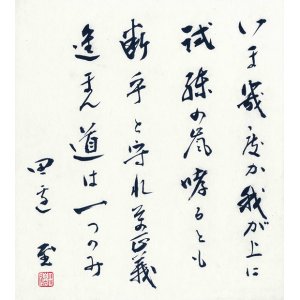 いま幾度か我が上に
試練の嵐哮るとも
断乎と守れ其正義
進まん道は一つのみ
田辺 至